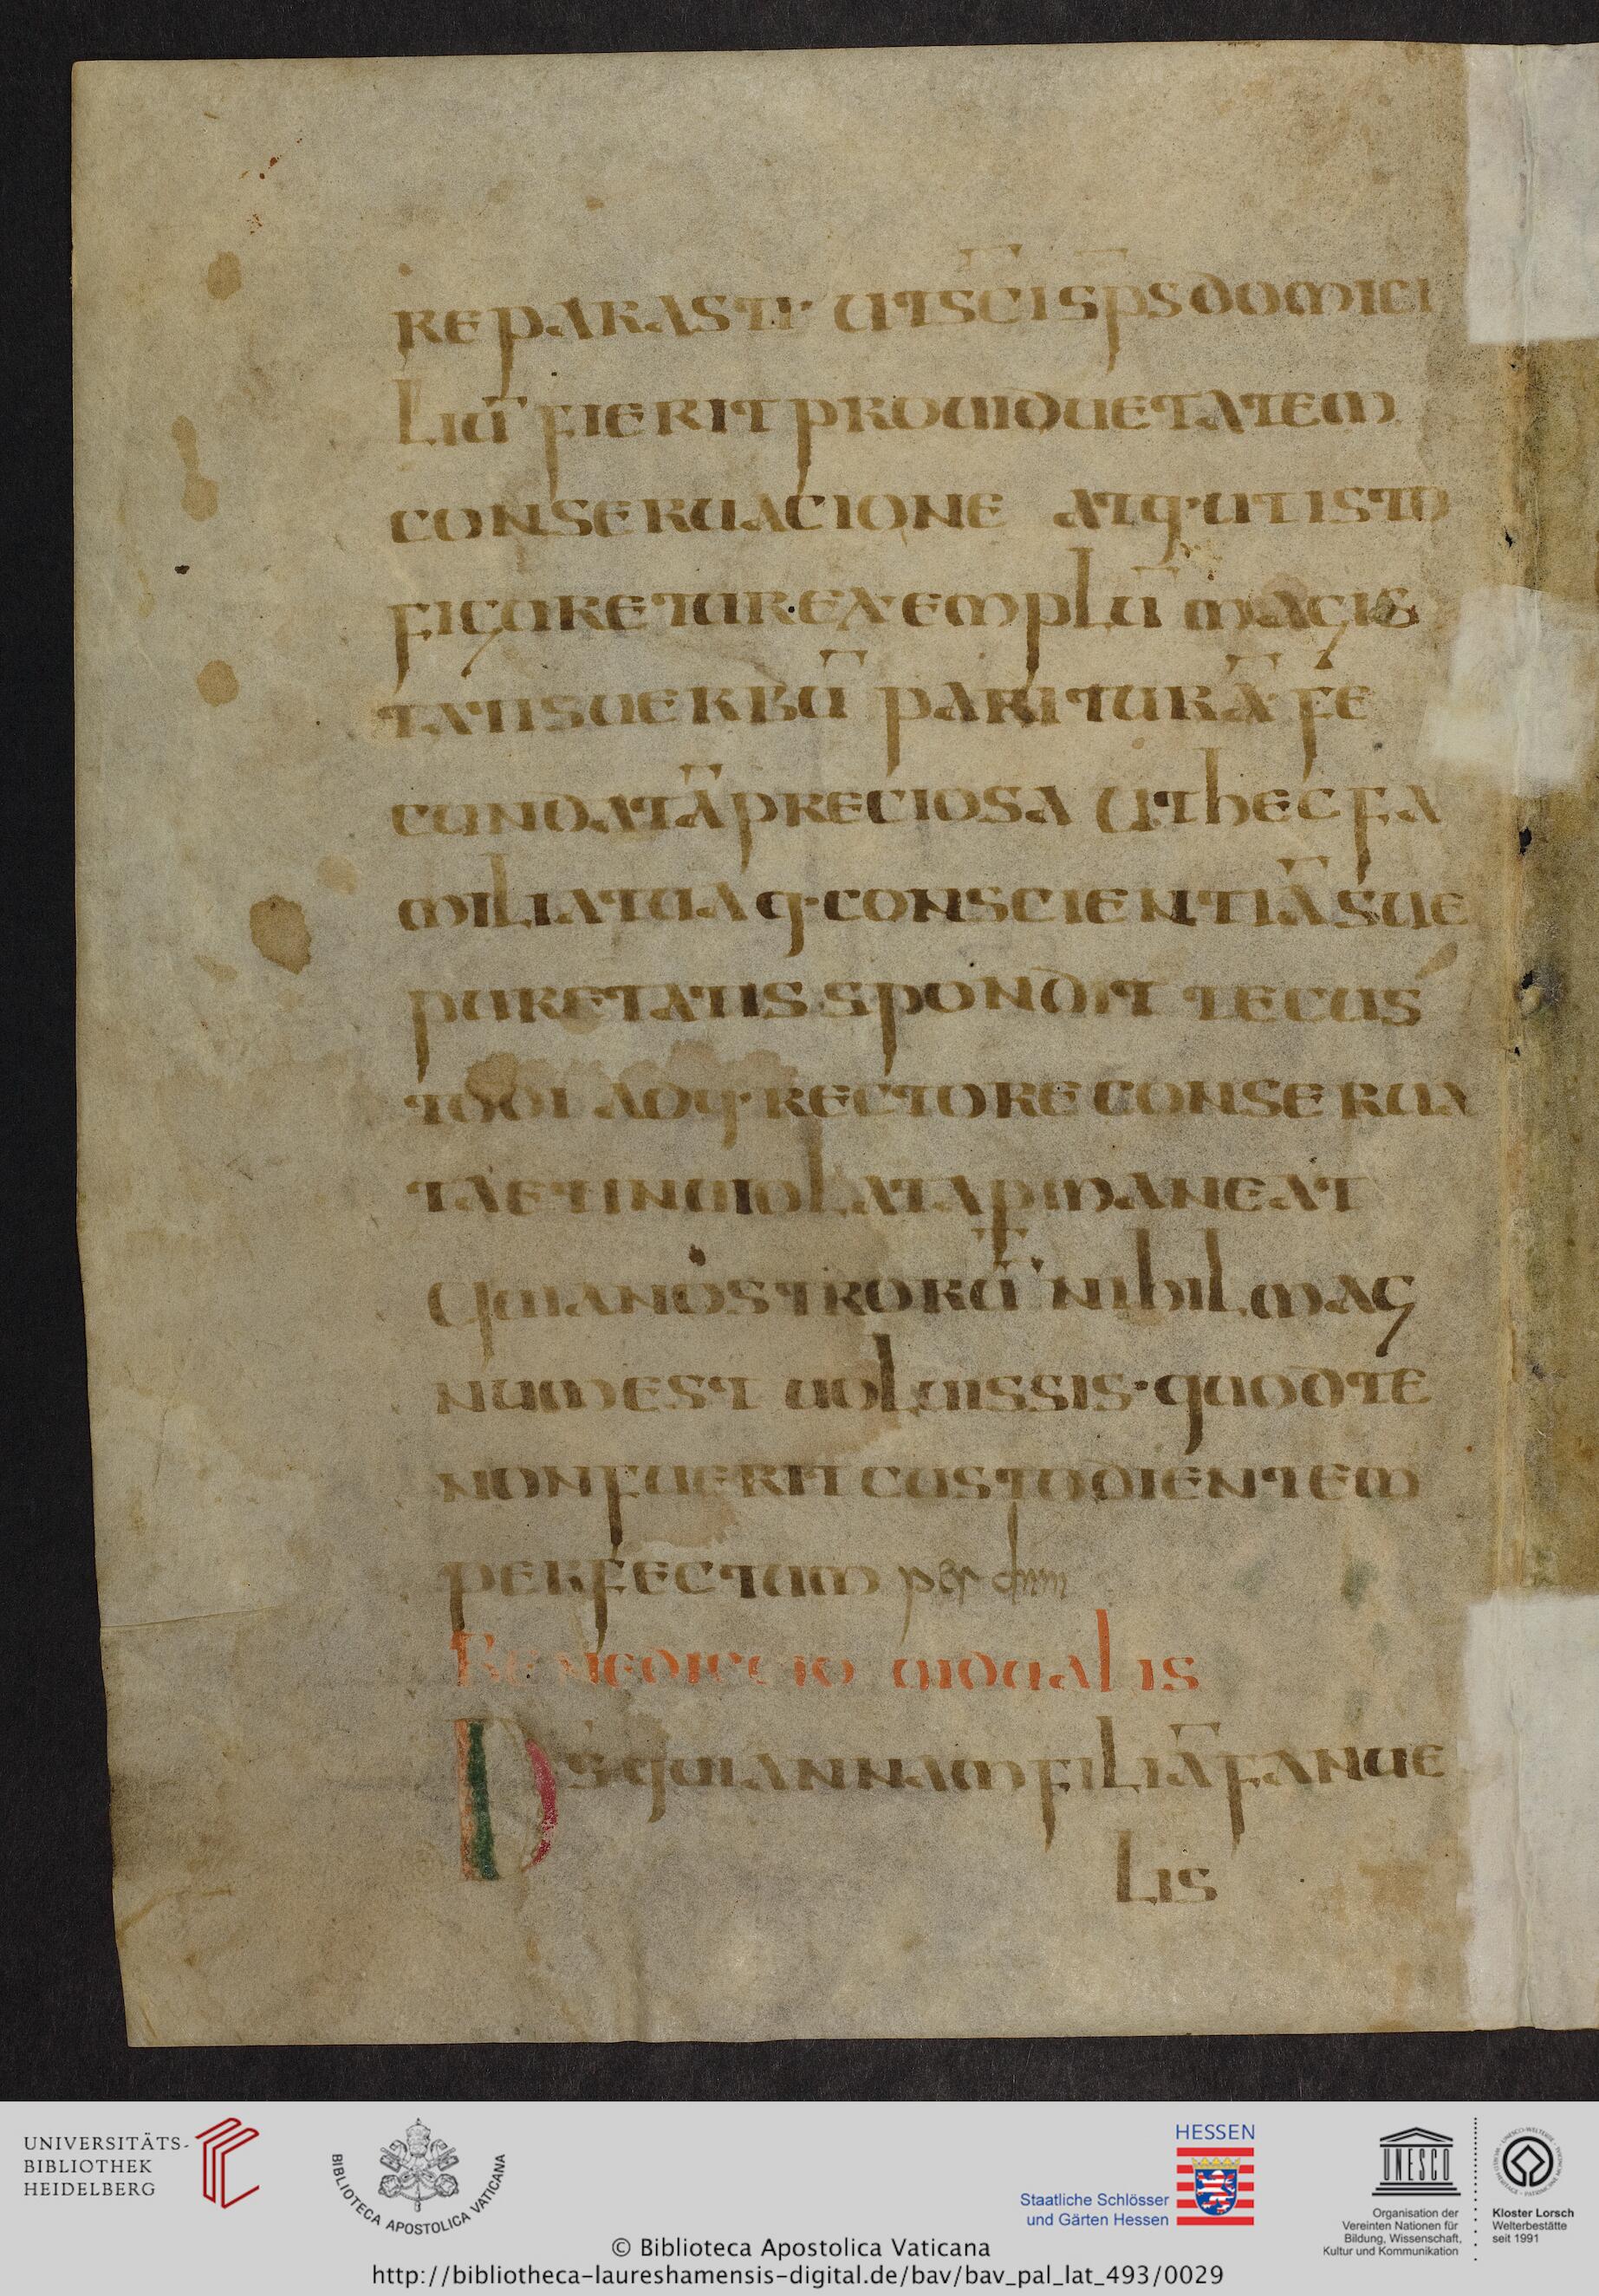 REPARASTI· UTSC̄ISP̄SDOMICI
LIŪ FIERIT PROUIDUETATEM
CONSERUACIONE ATQ·UTISTO
FIGURETUREXEMPLŪ MAGIS
TATISUERBŪ PARITURĀ·FE
CUNDATĀPRECIOSA UTHECFA
MILIATUAQ·CONSCIENTIĀSUE
PURETATISSPONDIT TECUS
TODI ADQ·RECTORECONSERUA
TAETINUIOLATAPMANEAT
QUIANOSTRORŪ NIHILMAG
NUMEST UOLUISSIS·QUODTE
NONFUERITCUSTODIENTEM
PERFECTUM per dnm
BENEDICCIO UIDUALIS
DS̄QUIANNAMFILIĀFANUE
LIS
UNIVERSITÄTS-
BIBLIOTHEK
HEIDELBERG
BIBLIOTECA APOSTOLICA VATICANA
HESSEN
Staatliche Schlösser
und Gärten Hessen
UNESCO
Organisation der
Vereinten Nationen für
Bildung, Wissenschaft,
Kultur und Kommunikation
Kloster Lorsch
Welterbestätte
seit 1991
© Biblioteca Apostolica Vaticana
http://bibliotheca-laureshamensis-digital.de/bav/bav_pal_lat_493/0029